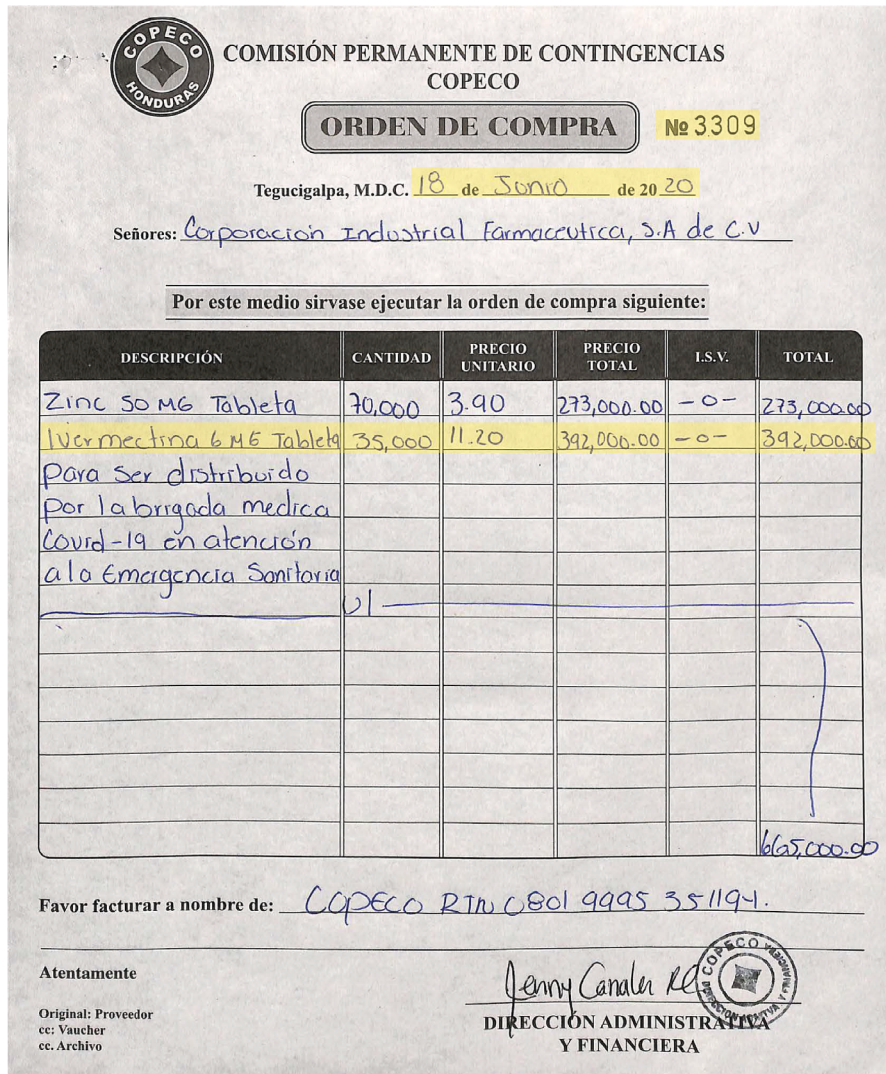 COPECO
HONDURAS
COMISIÓN PERMANENTE DE CONTINGENCIAS
COPECO
ORDEN DE COMPRA
№ 3309
Tegucigalpa, M.D.C. 18 de Junio de 2020
Señores: Corporación Industrial Farmaceutica, S.A de C.V
Por este medio sirvase ejecutar la orden de compra siguiente:
DESCRIPCIÓN CANTIDAD PRECIO UNITARIO PRECIO TOTAL I.S.V. TOTAL
Zinc 50 MG Tableta 70,000 3.90 273,000.00 -0- 273,000.00
Ivermectina 6 MG Tableta 35,000 11.20 392,000.00 -0- 392,000.00
para ser distribuido
por la brigada medica
Covid-19 en atención
a la Emergencia Sanitaria
665,000.00
Favor facturar a nombre de: COPECO RTN 0801 9995 351194.
Atentamente
Jenny Canales
Original: Proveedor
cc: Vaucher
cc. Archivo
DIRECCIÓN ADMINISTRATIVA
Y FINANCIERA
COPECO